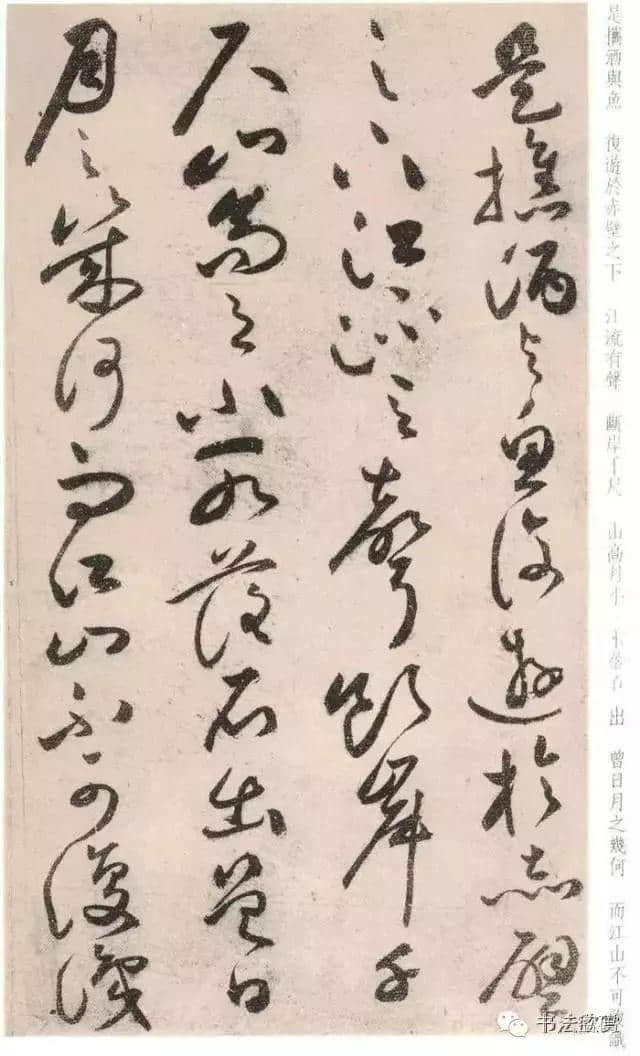 是攜酒與魚 復遊於赤壁之下 江流有聲 斷岸千尺 山高月小 水落石出 曾日月之幾何 而江山不可復識
是攜酒與魚復遊於赤壁
之下江流有聲斷岸千
尺山高月小水落石出曾日
月之幾何而江山不可復識
书法欣赏